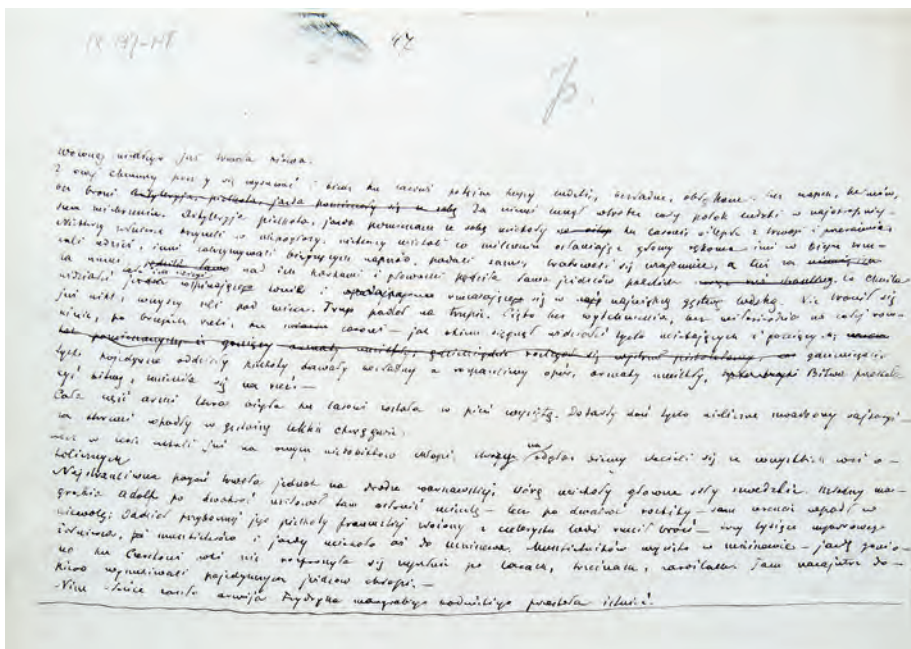 47
Wówczas niedługo już trwała bitwa.
Z owej chmury poczęły się wysuwać i biec ku lasowi potężne kupy ludzi, bezładne, obłąkane: bez czapek, hełmów,
bez broni. Artyleryja, piechota, jazda pomieszały się z sobą Za nimi runął wkrótce cały potok ludzki w najokropniej-
szem zmieszaniu. Artylerja piechota, jazda pomieszane ze sobą uciekały ku lasowi oślepłe z trwogi i przerażenia.
Niektórzy żołnierze krzyczeli w niebogłosy, niektórzy uciekali w milczeniu osłaniając głowy rękoma. inni w biegu zrzu-
cali odzież, inni zatrzymywali biegnących naprzód, padali sami, tratowali się wzajemnie, a tuż za nimi
nad ich karkami i głowami pędziła ława jeźdźców polskich co chwila
widziałeś całe ich szeregi wspinające konie i rzucające się w największą gęstwę ludzką. Nie bronił się
już nikt, wszyscy szli pod miecz. Trup padał na trupie. Cięto bez wytchnienia, bez miłosierdzia na całej rów-
ninie, po brzegach rzeki, ku lasowi — jak okiem sięgnąć widziałeś tylko uciekających i goniących;
gdzieniegdzie
tylko pojedyncze oddziały piechoty dawały bezładny a rozpaczliwy opór, armaty umilkły. Bitwa przestała
być bitwą, zmieniła się na rzeź. —
Cała część armii która biegła ku lasowi została w pień wyciętą. Dotarły doń tylko nieliczne szwadrony rajtaryi —
za którymi wpadły w gęstwinę lekkie chorągwie.
lecz w lesie czekali już na owych niedobitków chłopi, którzy na odgłos bitwy zlecieli się ze wszystkich wsi o-
kolicznych
Najstraszliwsza pogoń trwała jednak na drodze warszawskiej, którą uciekały główne siły szwedzkie. Młodszy mar-
grabia Adolf po dwakroć usiłował tam osłonić ucieczkę — lecz po dwakroć rozbity — sam wreszcie wpadł w
niewolę. Oddział przybocznej jego piechoty francuskiej złożony z czterystu ludzi rzucił broń — trzy tysiące wyborowego
żołnierza, muszkietników i jazdy uciekało aż do Mniszewa. Muszkietników wycięto w Mniszewie — jazdę gonio-
no ku Czerskowi póki nie rozproszyła się zupełnie po lasach, trzcinach, zaroślach. Tam nazajutrz do-
piero wyszukiwali pojedynczych jeźdźców chłopi. —
Nim słońce zaszło armija Fryderyka margrabiego badeńskiego przestała istnieć.